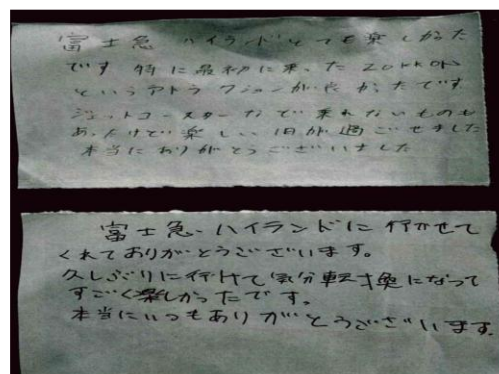 富士急ハイランドとても楽しかった
です 特に最初に乗った ZOKKON
というアトラクションが良かったです
ジェットコースターなので乗れないものも
あったけど楽しい1日が過ごせました
本当にありがとうございました
富士急ハイランドに行かせて
くれてありがとうございます。
久しぶりに行けて気分転換になって
すごく楽しかったです。
本当にいつもありがとうございます。